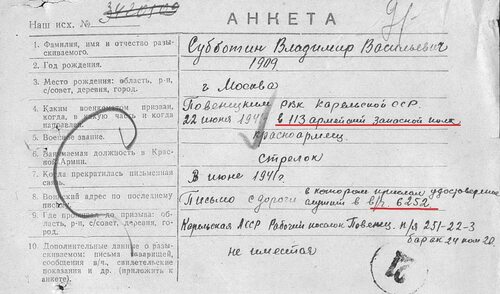 Наш исх. №
АНКЕТА
1. Фамилия, имя и отчество разыскиваемого.
Субботин Владимир Васильевич
2. Год рождения.
1909
3. Место рождения: область, р-н, с/совет, деревня, город.
г Москва
4. Каким военкоматом призван, когда, в какую часть и когда
Повенецким РВК Карельской ССР.
22 июня 194 в 113 армейский запасной полк
5. Военное звание.
красноармеец
6. Занимаемая должность в Красной Армии.
стрелок
7. Когда прекратилась письменная
В июне 1941г
8. Воинский адрес по последнему
Письмо с дороги в котором прислал удостоверение
служит в в/ч 6252
9. Где проживал до призыва: область, с/совет, деревня, город.
Карельская АССР Рабочий поселок Повенец. п/я 251-22-3
барак 24 ком 20
10. Дополнительные данные о разыскиваемом: письма товарищей, сообщения в/ч, свидетельские показания и др. (приложить к анкете).
не имеется
21